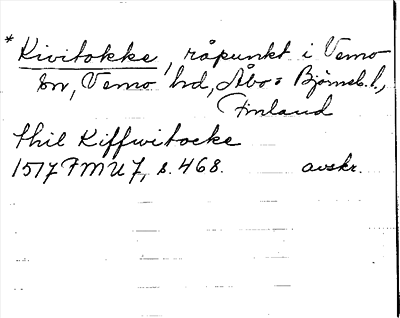 * Kivitokke, råpunkt i Vemo
sn, Vemo hd, Åbo o Björneb. l.,
Finland
thil Kiffwitocke
1517 FMU 7, s. 468. avskr.